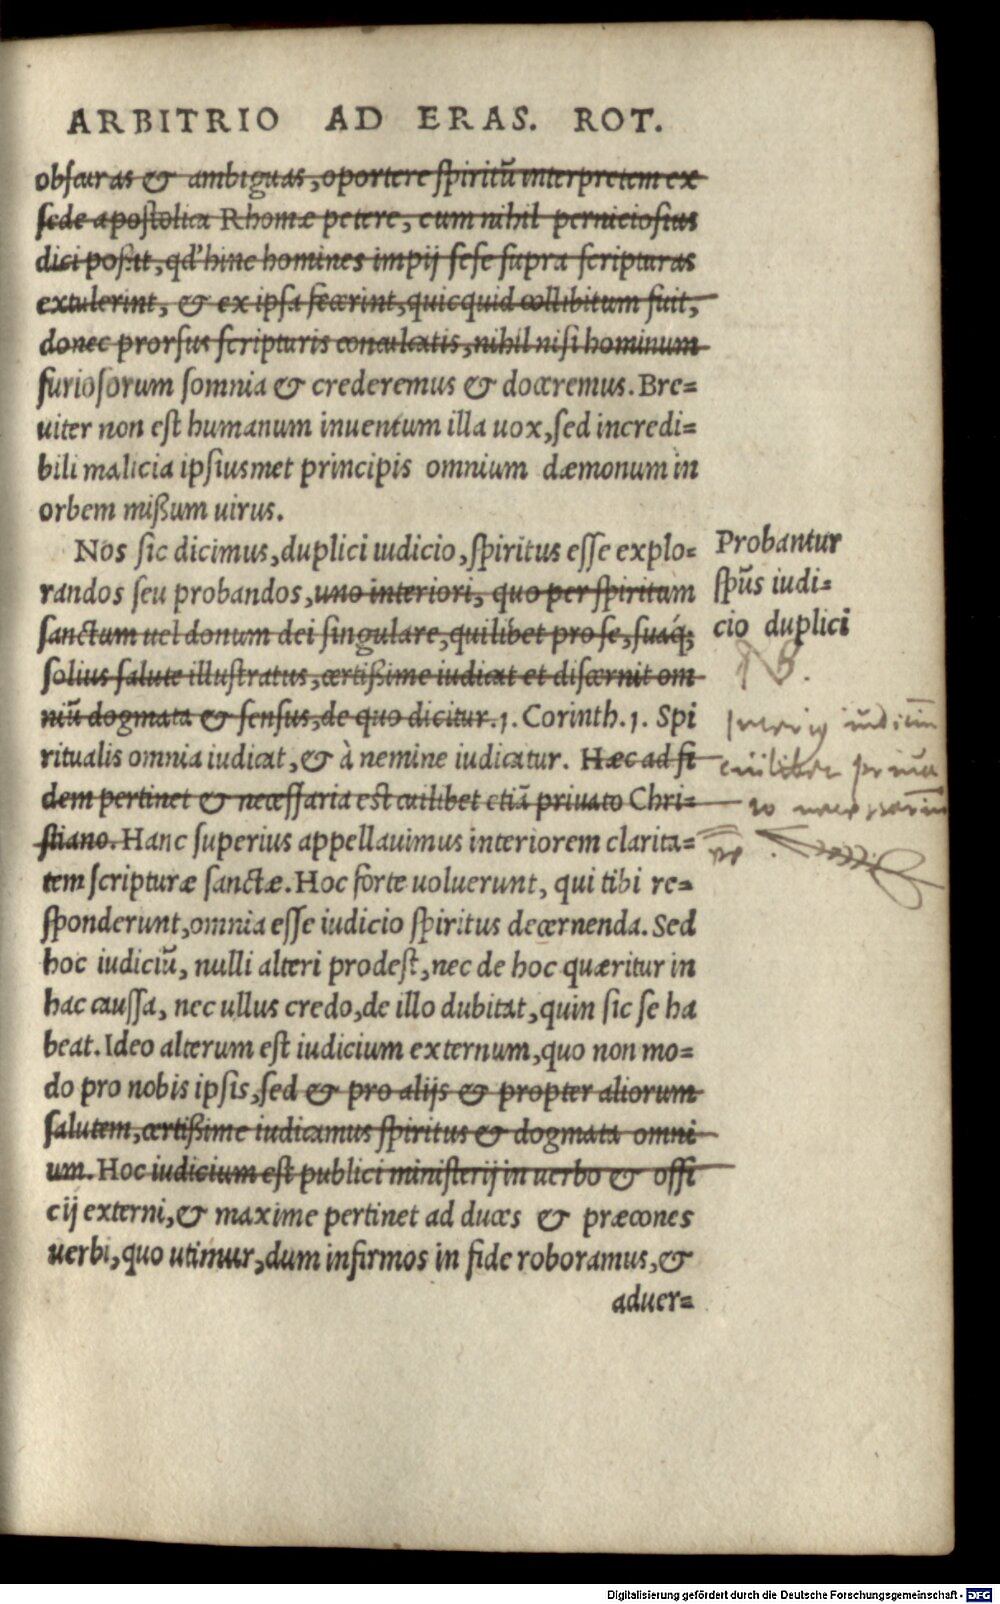 ARBITRIO AD ERAS. ROT.
obscuras & ambiguas, oportere spiritũ interpretem ex
sede apostolica Rhomæ petere, cum nihil perniciosius
dici poßit, qd' hinc homines impij sese supra scripturas
extulerint, & ex ipsa fecerint, quicquid collibitum fuit,
donec prorsus scripturis conculcatis, nihil nisi hominum
furiosorum somnia & crederemus & doceremus. Bre=
uiter non est humanum inuentum illa uox, sed incredi=
bili malicia ipsiusmet principis omnium dæmonum in
orbem mißum uirus.
Nos sic dicimus, duplici iudicio, spiritus esse explo=
randos seu probandos, uno interiori, quo per spiritum
sanctum uel donum dei singulare, quilibet pro se, suaq;
solius salute illustratus, certißime iudicat et discernit om
niũ dogmata & sensus, de quo dicitur. 1. Corinth. 1. Spi
ritualis omnia iudicat, & à nemine iudicatur. Hæc ad fi
dem pertinet & necessaria est cuilibet etiã priuato Chri=
stiano. Hanc superius appellauimus interiorem clarita=
tem scripturæ sanctæ. Hoc forte uoluerunt, qui tibi re=
sponderunt, omnia esse iudicio spiritus decernenda. Sed
hoc iudiciũ, nulli alteri prodest, nec de hoc quæritur in
hac caussa, nec ullus credo, de illo dubitat, quin sic se ha
beat. Ideo alterum est iudicium externum, quo non mo=
do pro nobis ipsis, sed & pro alijs & propter aliorum
salutem, certißime iudicamus spiritus & dogmata omni
um. Hoc iudicium est publici ministerij in uerbo & offi
cij externi, & maxime pertinet ad duces & præcones
uerbi, quo utimur, dum infirmos in fide roboramus, &
aduer=
Probantur
spũs iudi=
cio duplici
NB.
cuilibet priua